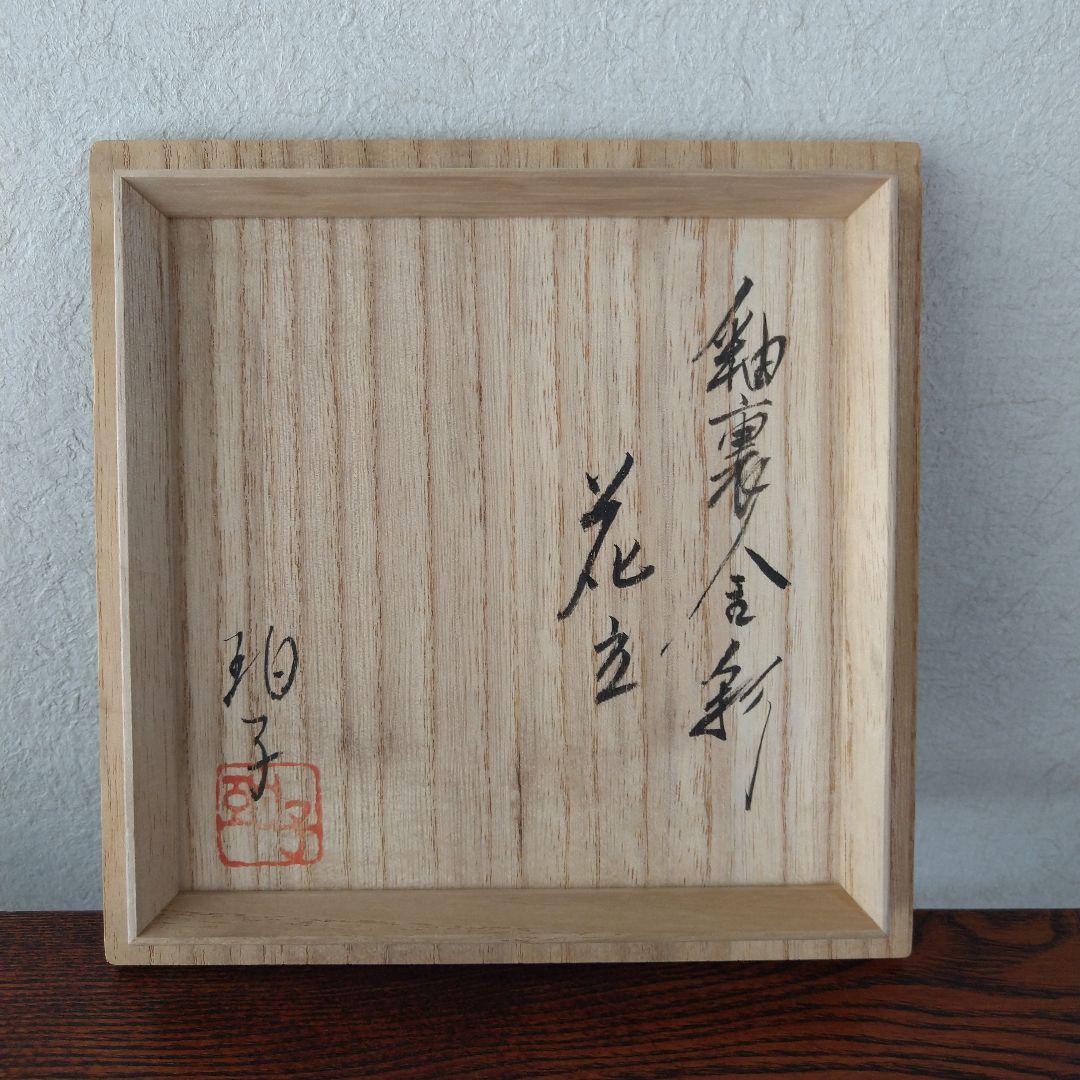 釉裏金彩
花立
珀子